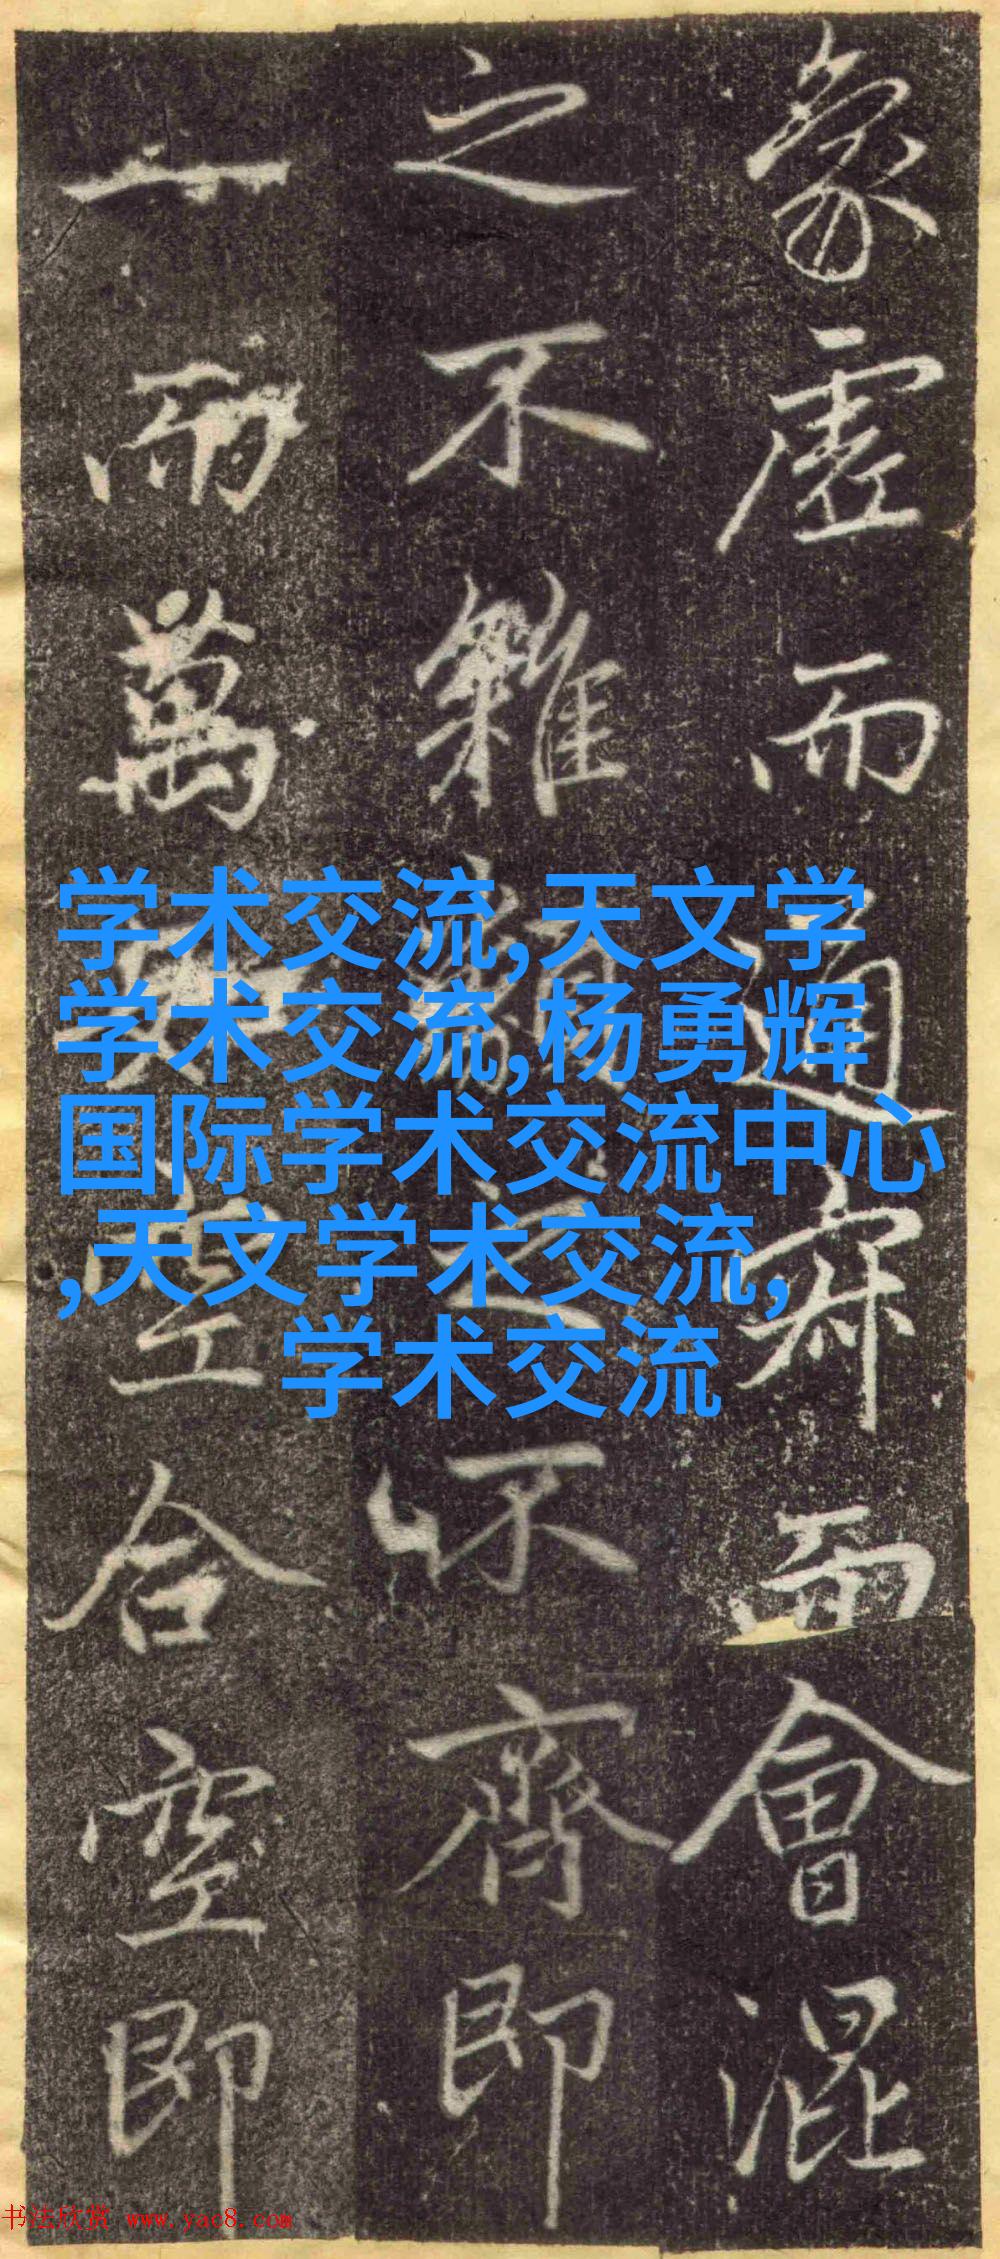 象虛而通寂而會混
之不雜類之不齊即
一而萬合空即
学术交流,天文学
学术交流,杨勇辉
国际学术交流中心
,天文学术交流,
学术交流
书法欣赏 www.yac8.com